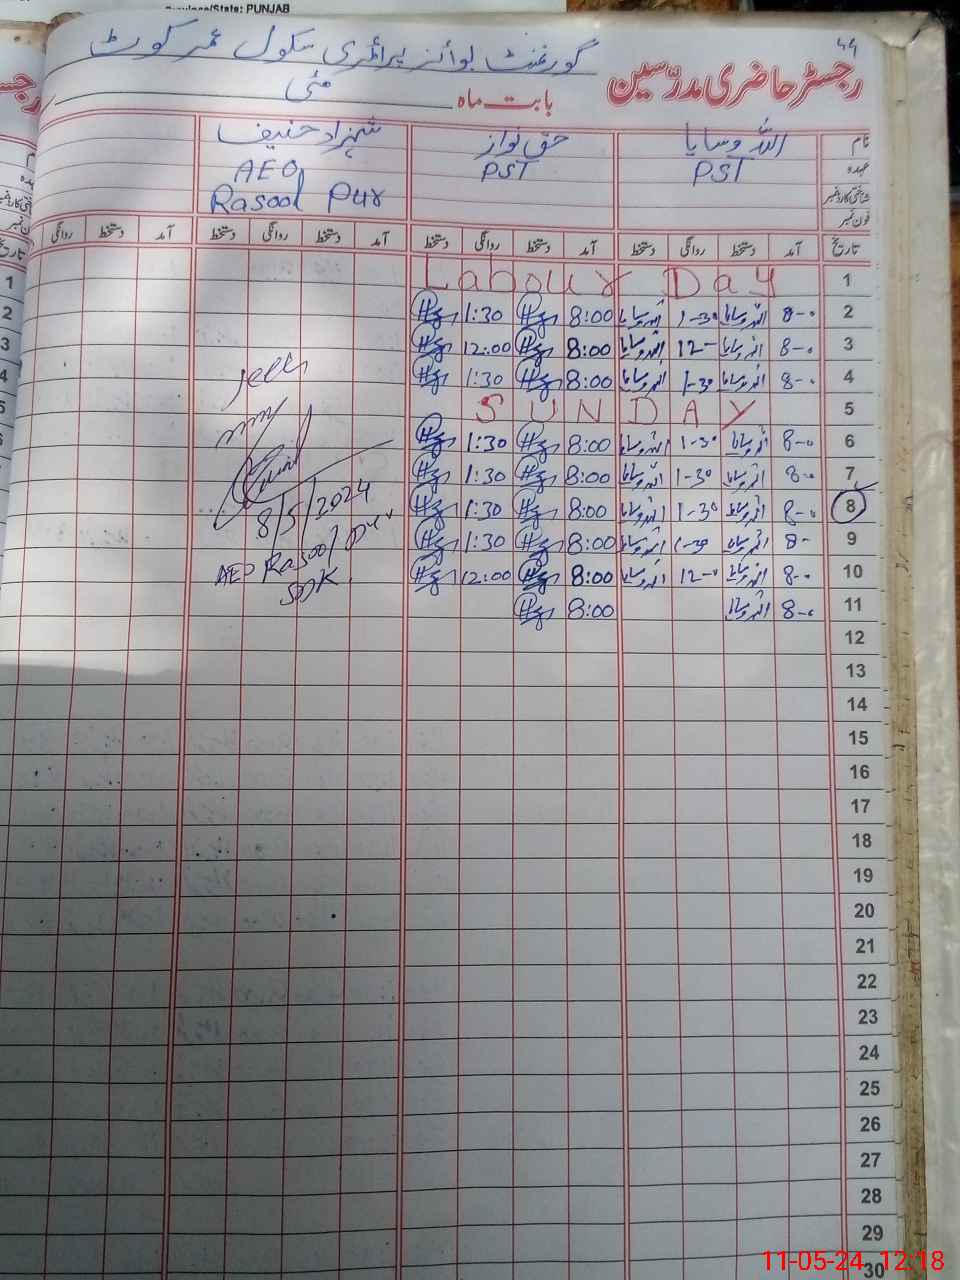 Province/State: PUNJAB
گورنمنٹ بوائز پرائمری سکول عمر کوٹ
رجسٹر حاضری مدرّسین
بابت ماہ مئی
نام اللہ وسایا حق نواز شہزاد حنیف
عہدہ PST PST AEO
شناختی کارڈ نمبر Rasool Pur
فون نمبر
تاریخ آمد دستخط روانگی دستخط آمد دستخط روانگی دستخط آمد دستخط روانگی دستخط آمد دستخط روانگی
1 Labour Day
2 8-0 اللہ وسایا 1-30 اللہ وسایا 8:00 1:30
3 8-0 اللہ وسایا 12- اللہ وسایا 8:00 12:00
4 8-0 اللہ وسایا 1-30 اللہ وسایا 8:00 1:30
5 SUNDAY
6 8-0 اللہ وسایا 1-30 اللہ وسایا 8:00 1:30
7 8-0 اللہ وسایا 1-30 اللہ وسایا 8:00 1:30
8 8-0 اللہ وسایا 1-30 اللہ وسایا 8:00 1:30
9 8- اللہ وسایا 1-30 اللہ وسایا 8:00 1:30
10 8-0 اللہ وسایا 12-0 اللہ وسایا 8:00 12:00
11 8-0 اللہ وسایا 8:00
8/5/2024
AEO Rasool Pur
12
13
14
15
16
17
18
19
20
21
22
23
24
25
26
27
28
29
30
11-05-24 12:18